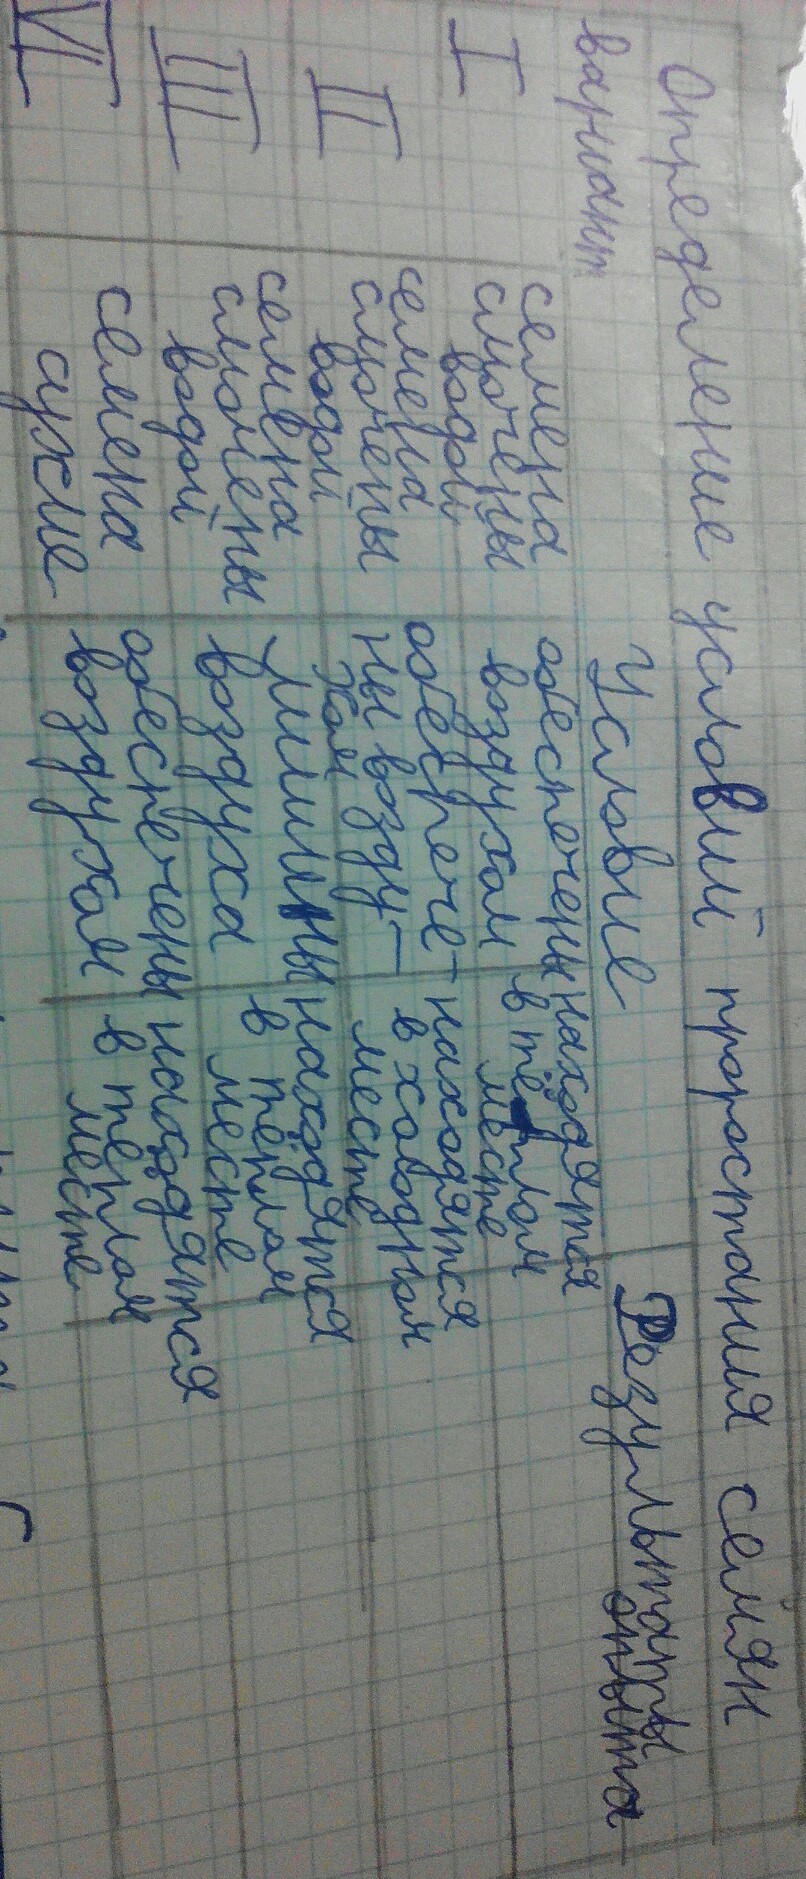 Определение условий проростания семян
вариант
Условие
Результаты
опыта
I
семена
смочены
водой
обеспечены
воздухом
находятся
в тёплом
месте
II
семена
смочены
водой
обеспече-
ны возду-
хом
находятся
в холодном
месте
III
семена
смочены
водой
лишины
воздуха
находятся
в тёплом
месте
VI
семена
сухие
обеспечены
воздухом
находятся
в тёплом
месте